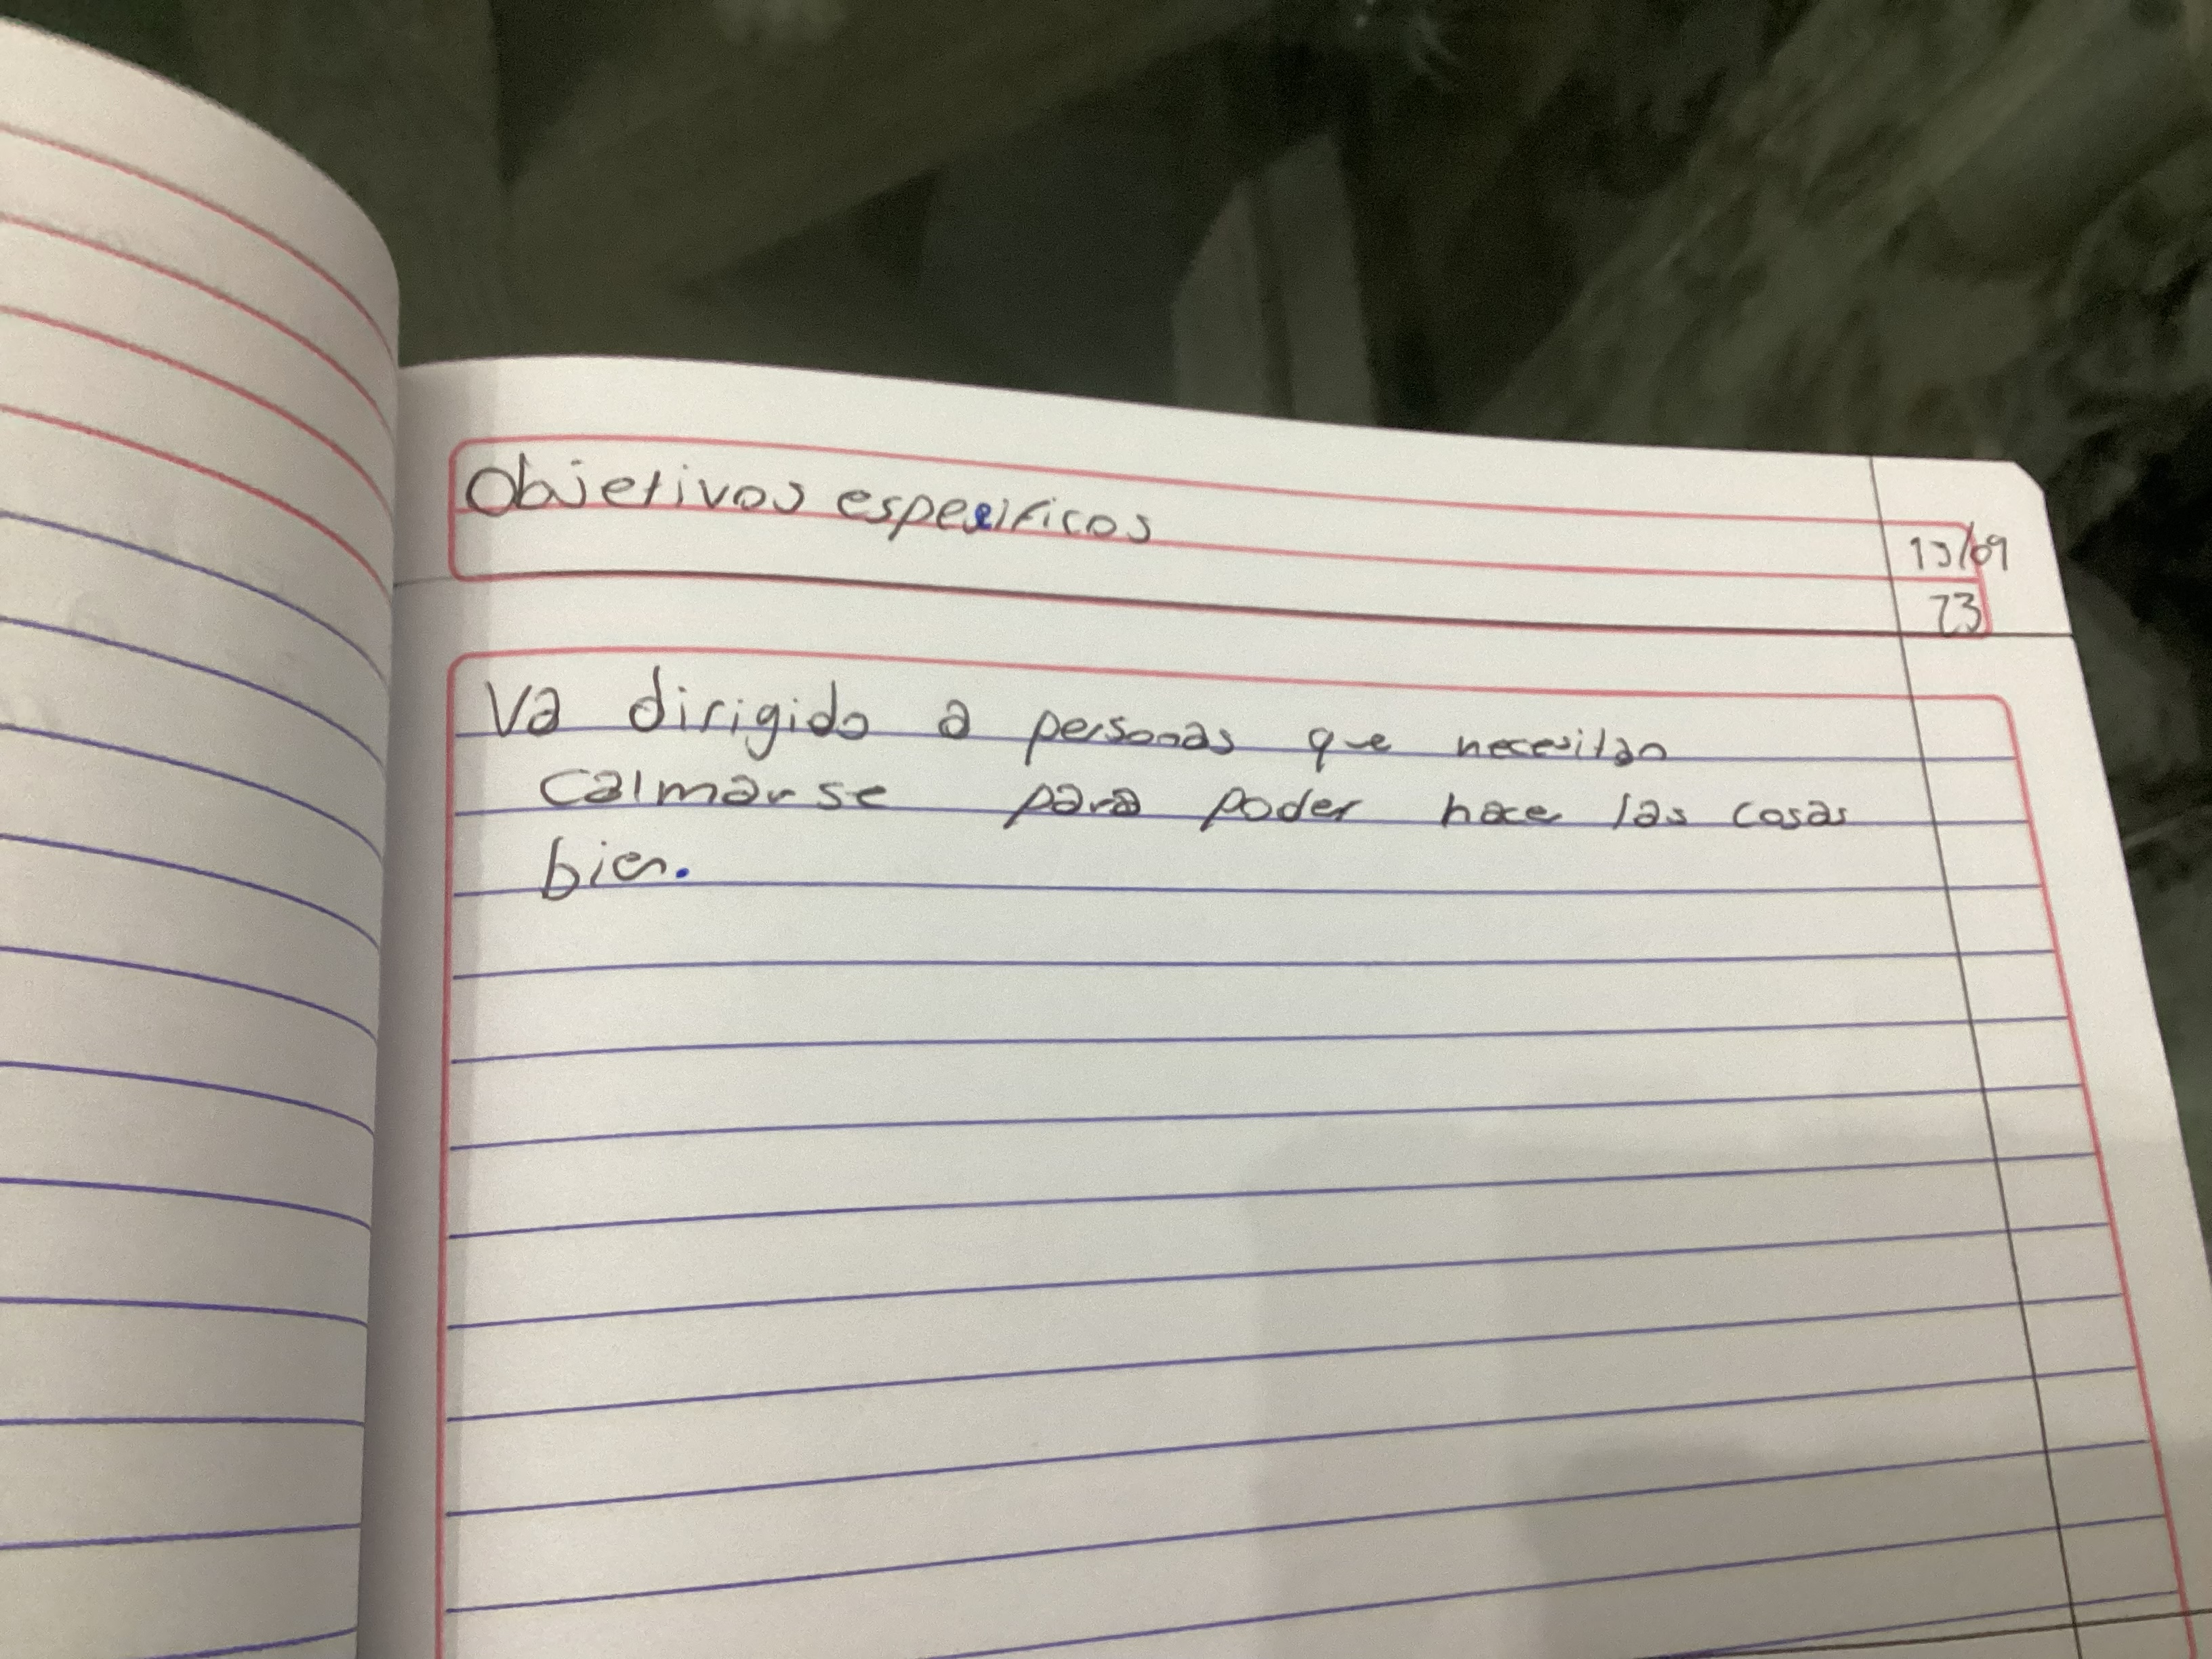 Objetivos especificos
13/09
23
Va dirigido a personas que necesitan
calmarse para poder hacer las cosas
bien.